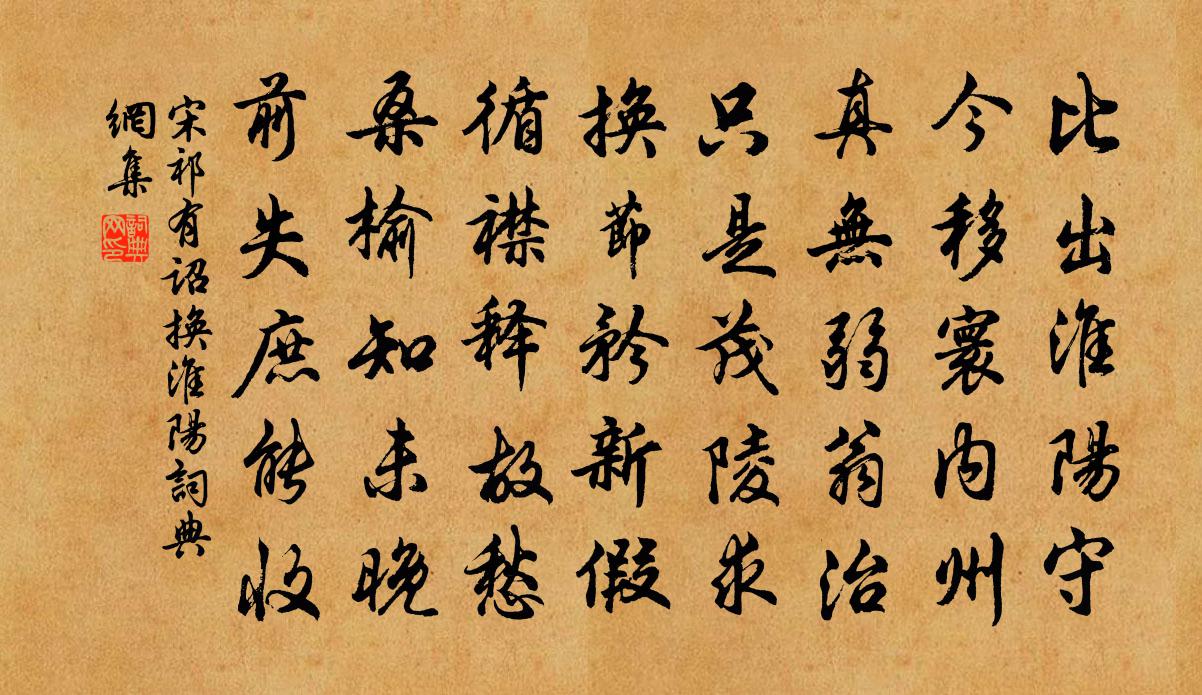 比出淮陽守
今移寰内州
真無弱翁治
只是茂陵求
換節矜新假
循襟释故愁
桑榆知未晚
前失庶能收
宋祁有詔換淮陽詞典
網集
詞典網印